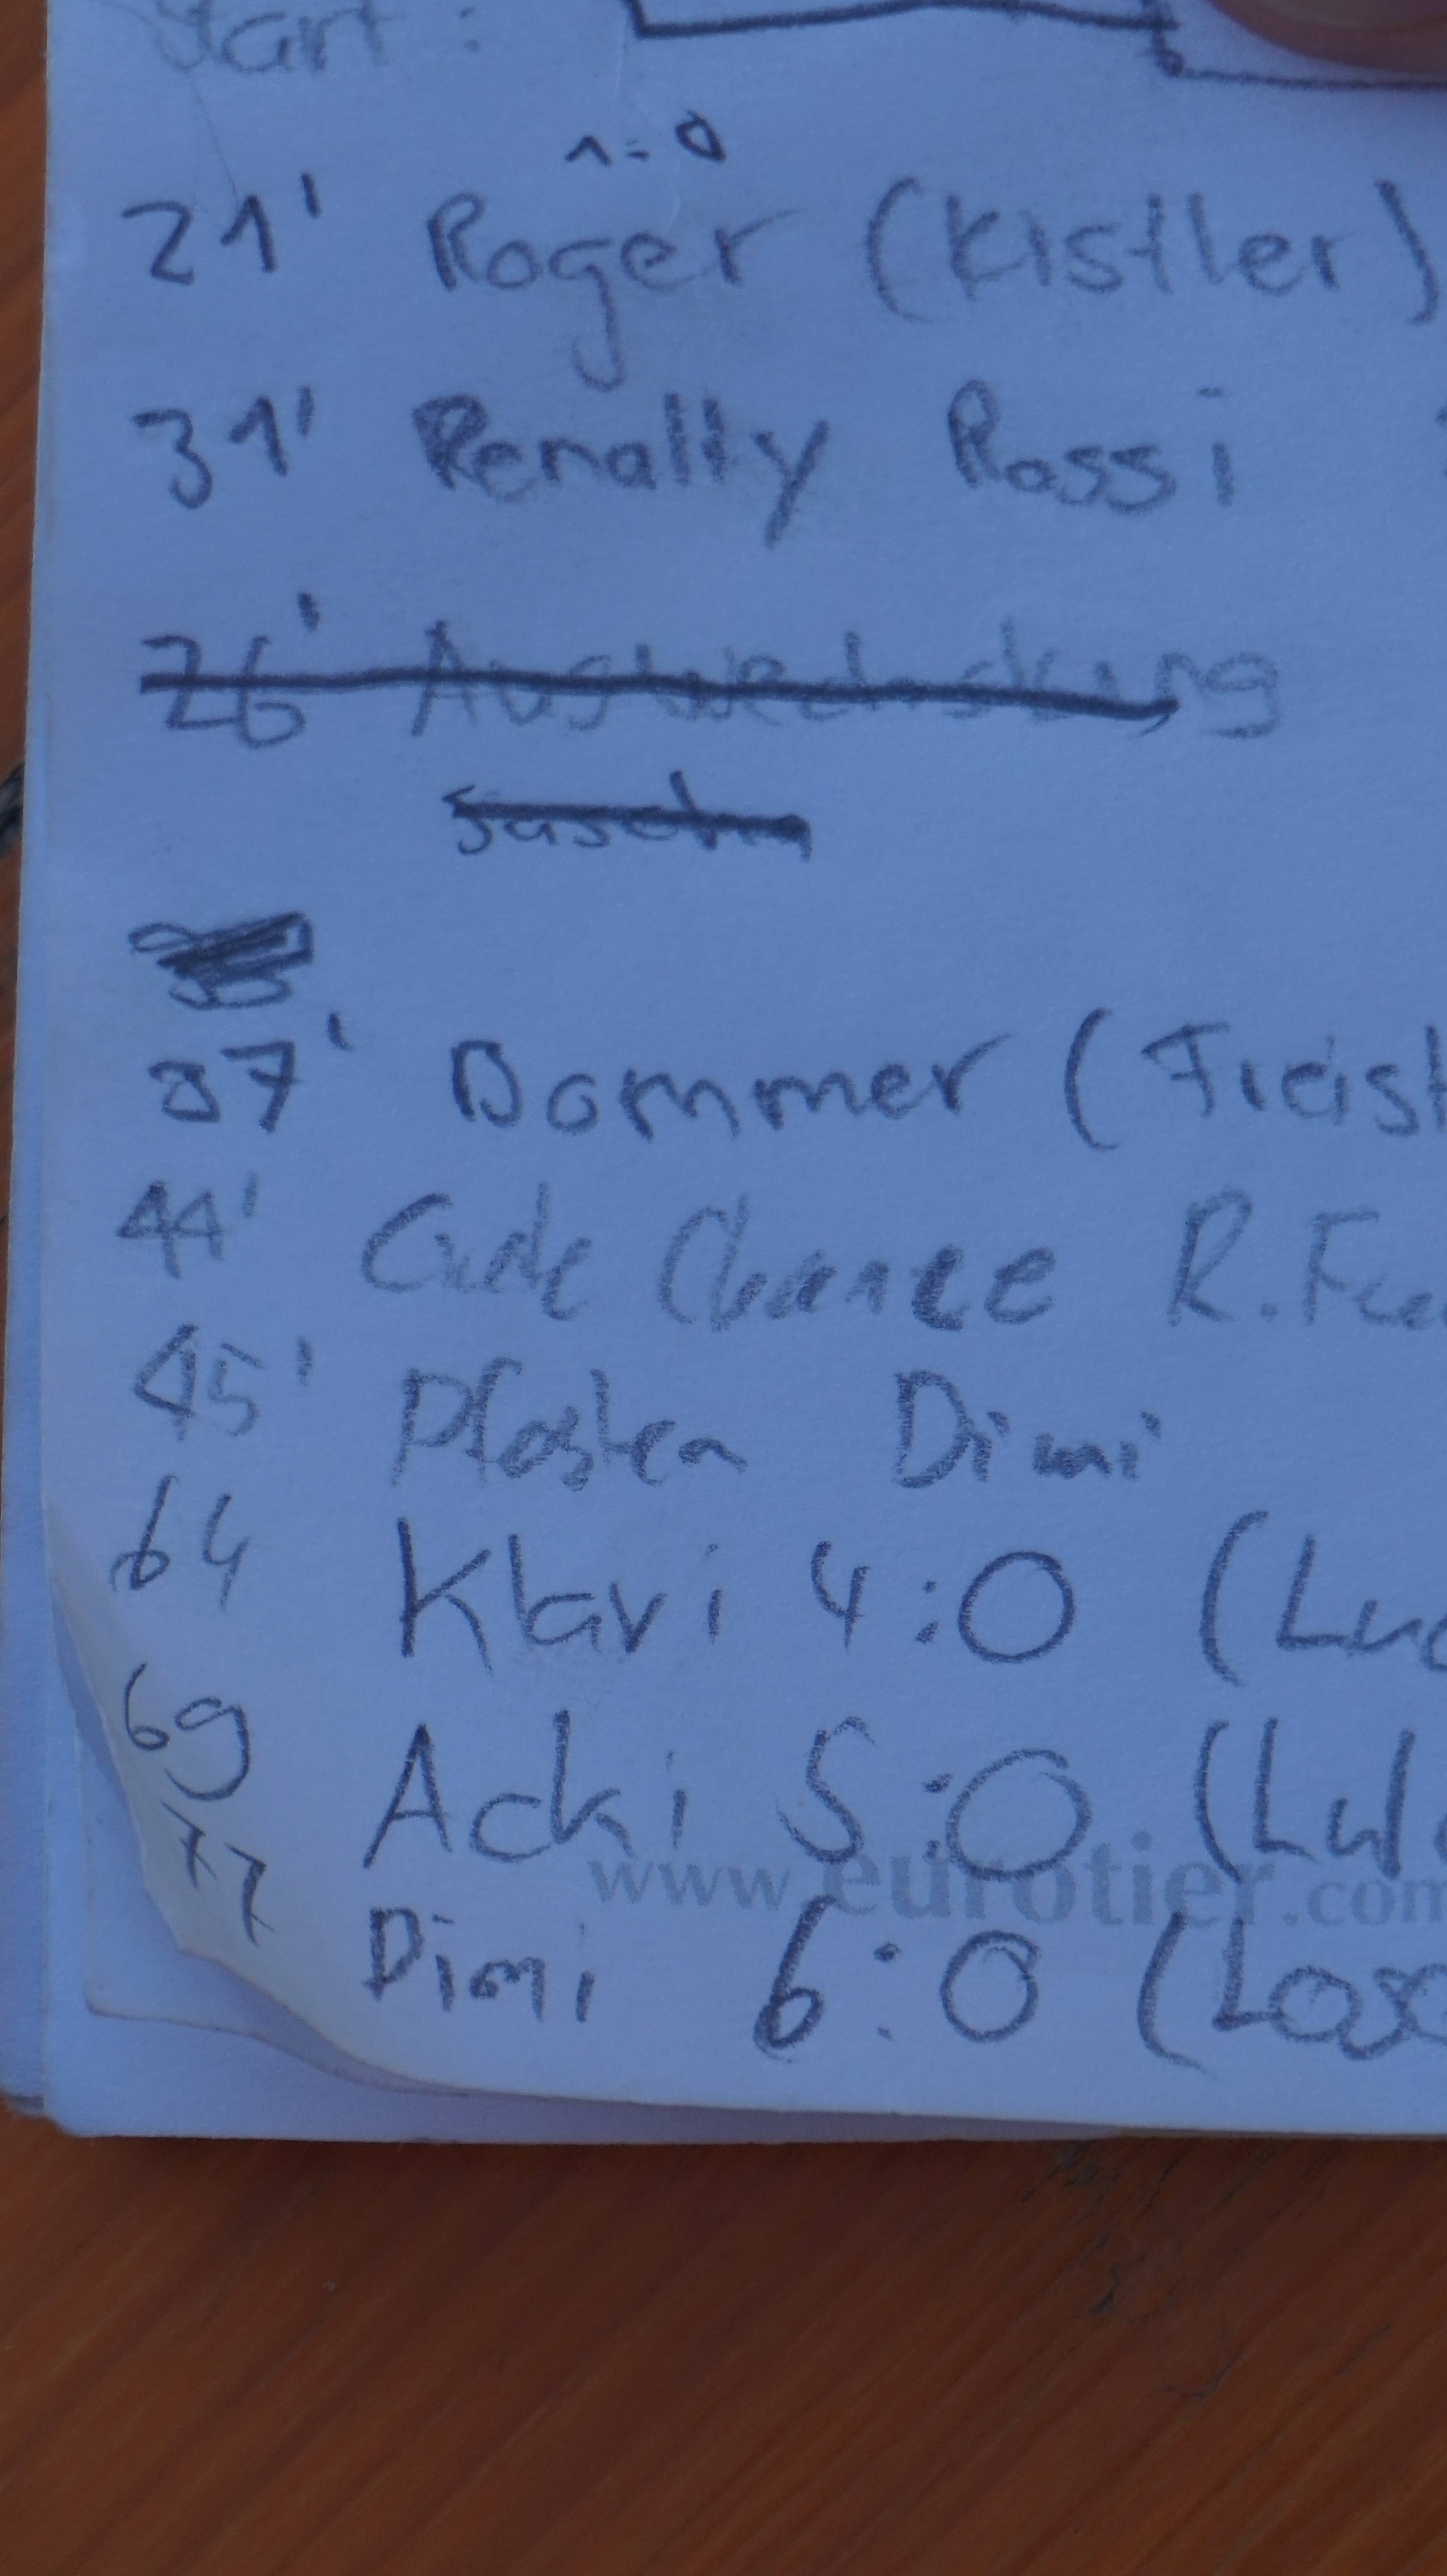 Start :
1:0
21' Roger (Kistler)
31' Penalty Rossi
26' Auswechslung
37' Dommer (Freist
44' Gude Chance R. Fu
45' Pfosten Dimi
64 Klavi 4:0 (Luc
69 Acki 5:0 (Lul
www.eurotier.com
77 Dimi 6:0 (Loso